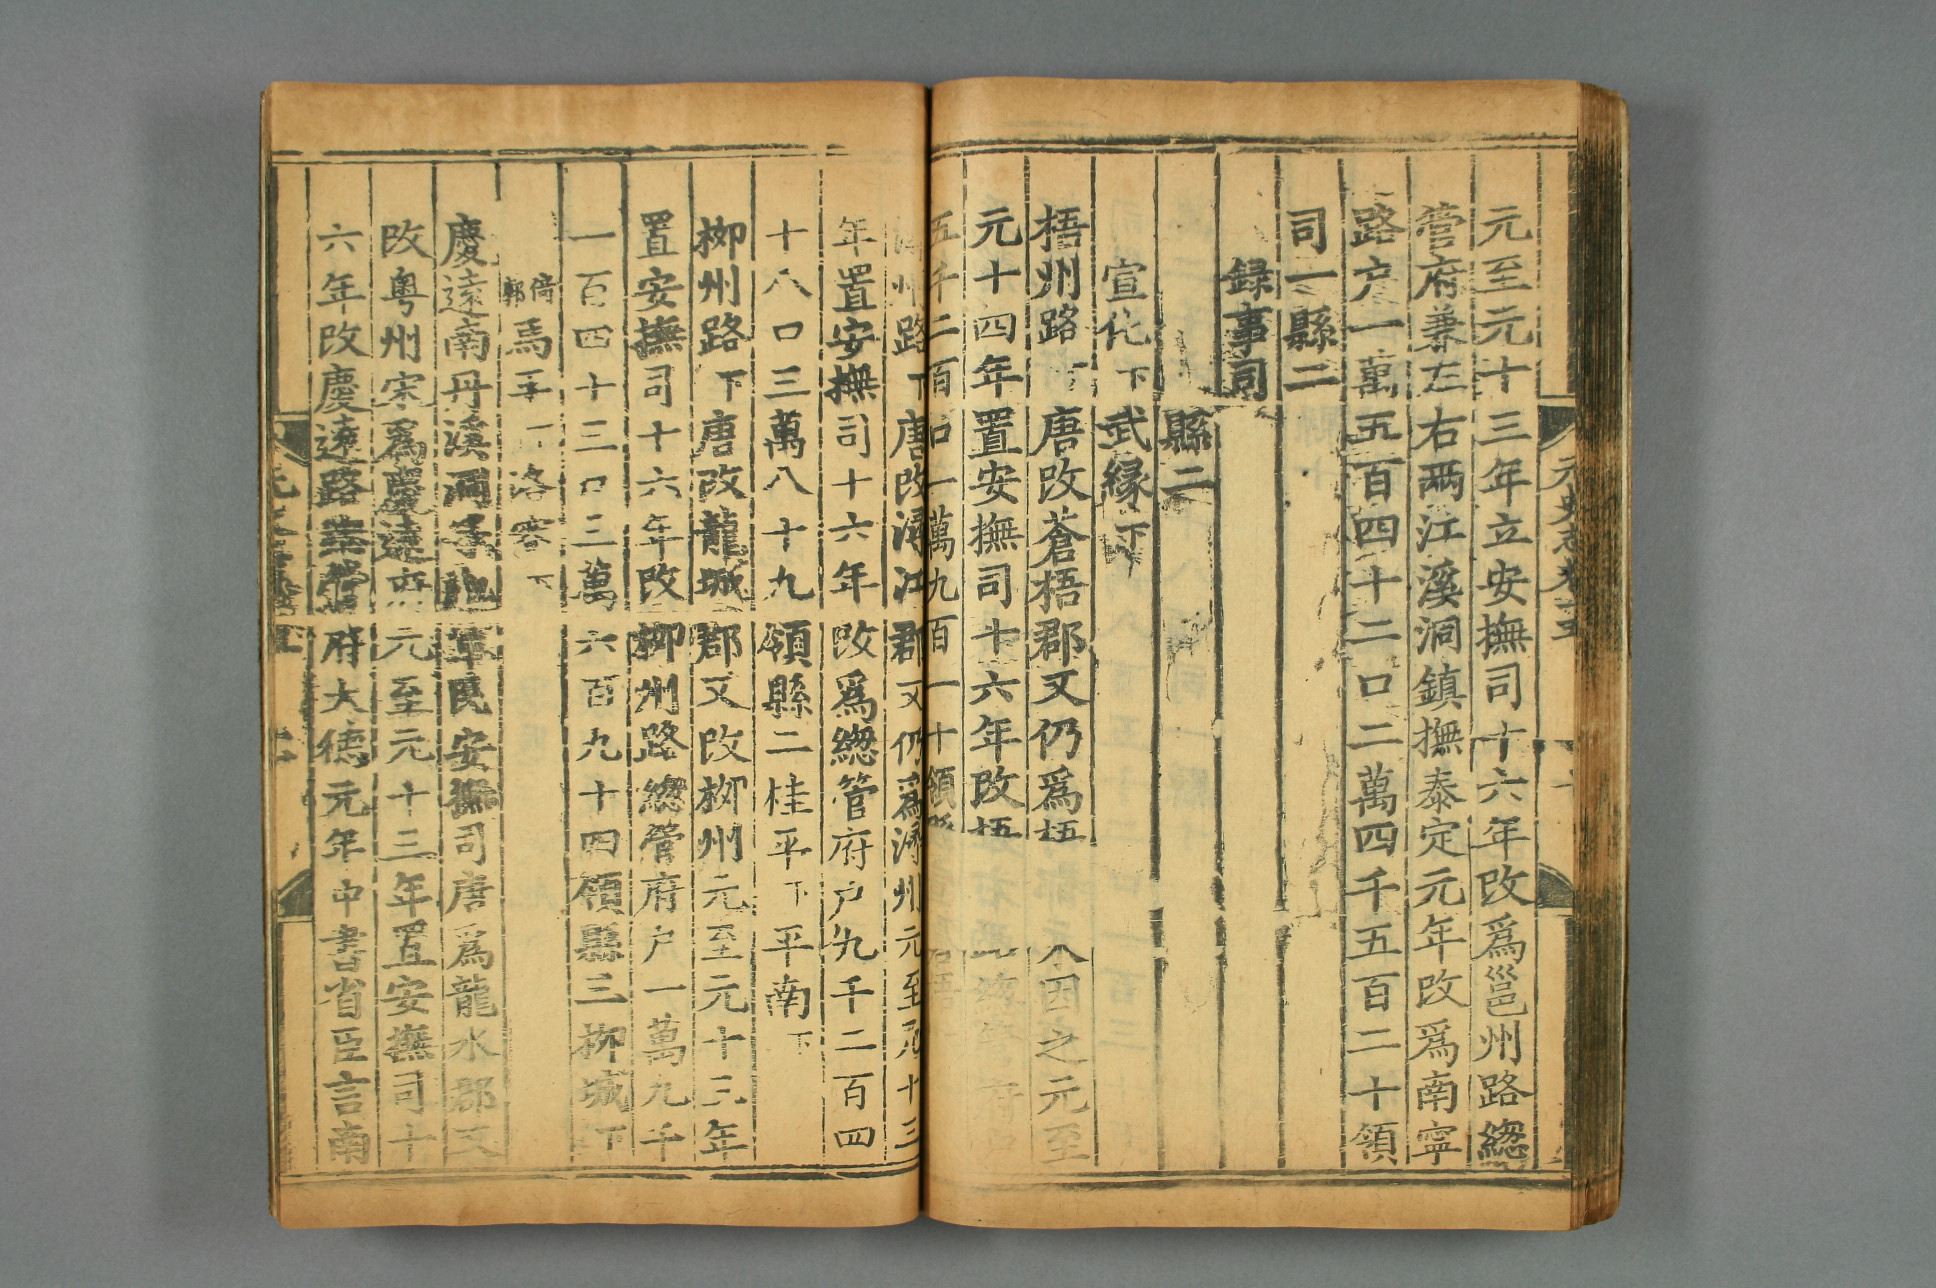 元至元十三年立安撫司十六年改爲邕州路緫
管府兼左右兩江溪洞鎮撫泰定元年改爲南寧
路户一萬五百四十二口二萬四千五百二十領
司一縣二
録事司
縣二
宣化下武縁下
梧州路下唐改蒼梧郡又仍爲梧因之元至
元十四年置安撫司十六年改梧緫管府
五千二百口一萬九百一十領
潯州路下唐改潯江郡又仍爲潯州元至元十三
年置安撫司十六年改爲緫管府户九千二百四
十八口三萬八十九領縣二桂平下平南下
柳州路下唐改龍城郡又改柳州元至元十三年
置安撫司十六年改柳州路緫管府户一萬九千
一百四十三口三萬六百九十四領縣三柳城下
倚郭馬平下洛容下
慶遠南丹溪洞等處軍民安撫司唐爲龍水郡又
改粤州宋爲慶遠府元至元十三年置安撫司十
六年改慶遠路緫管府大德元年中書省臣言南